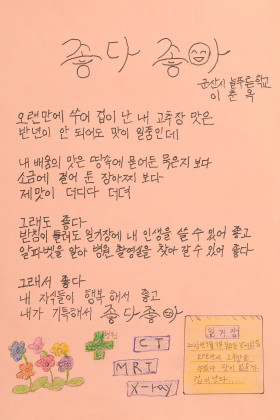 좋다 좋아
군산시 늘푸른학교
이춘옥
오랜만에 쑤어 겁이 난 내 고추장 맛은
반년이 안 되어도 맛이 일품인데
내 배움의 맛은 땅속에 묻어둔 묵은지 보다
소금에 절여 둔 장아찌 보다
제맛이 더디다 더뎌
그래도 좋다
받침이 틀려도 일기장에 내 인생을 쓸 수 있어 좋고
알파벳을 알아 병원 촬영실을 찾아 갈 수 있어 좋다
그래서 좋다
내 자식들이 행복해서 좋고
내가 기특해서 좋다 좋아
병원
CT
MRI
X-ray
일기장